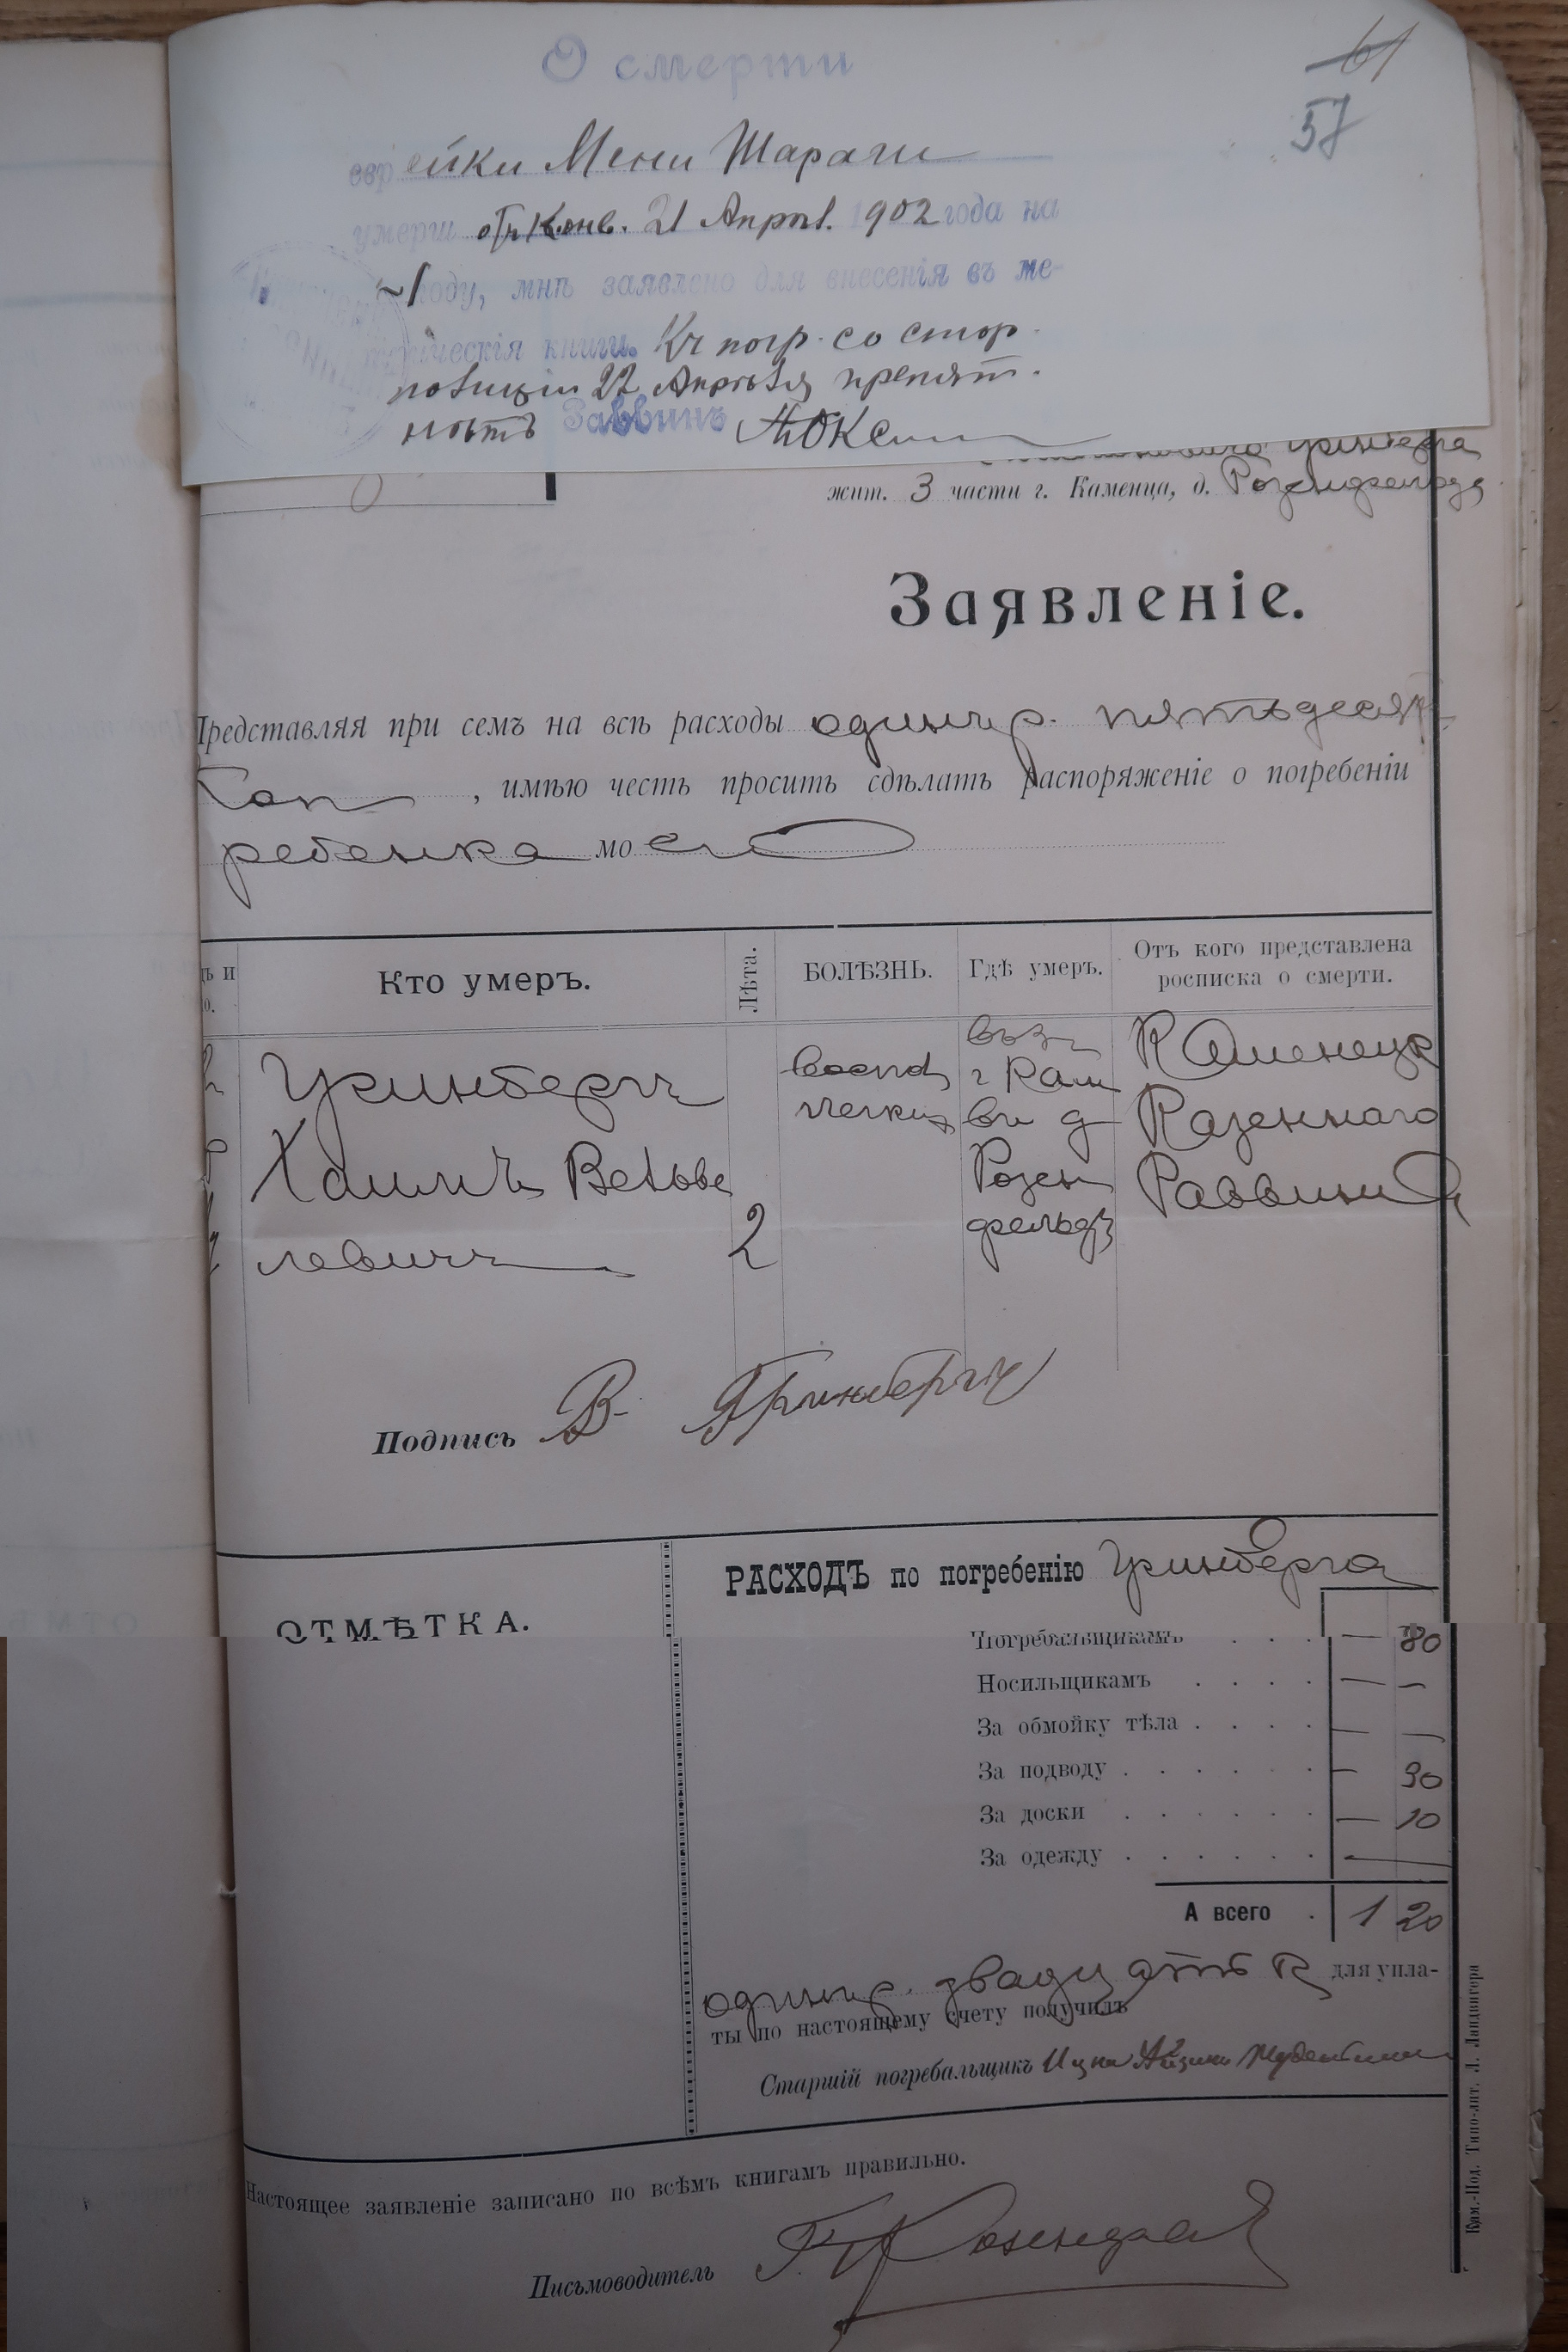 О смерти
61
57
еврейки Мени Шарачи
умерш отъ Конв. 21 Апрѣл. 1902 года на
1 году, мнѣ заявлено для внесенія въ ме-
рическія книги. Къ погр. со стор.
полиціи 22 Апрѣля препят.
нѣтъ Раввинъ
Гринберга
жит. 3 части г. Каменца, д. Розенфельда
Заявленіе.
Представляя при семъ на всѣ расходы одинъ р. пятьдесят
коп , имѣю честь просить сдѣлать распоряженіе о погребеніи
ребенка моего
ъ и
о.
Кто умеръ.
Лѣта.
БОЛѢЗНЬ.
Гдѣ умеръ.
Отъ кого представлена
росписка о смерти.
Гринбергъ
Хаимъ Вельве
левичъ
2
воспал
легких
въ 3 ч
г Кам
въ д
Розен
фельдъ
Каменецк
Казеннаго
Раввина
Подпись В. Гринбергъ
ОТМѢТКА.
РАСХОДЪ по погребенію Гринберга
Погребальщикамъ . . . — 80
Носильщикамъ . . . . — —
За обмойку тѣла . . . . — —
За подводу . . . . . . — 30
За доски . . . . . . — 10
За одежду . . . . . . —
А всего . 1 20
одинъ р. двадцать к для упла-
ты по настоящему счету получилъ
Старшій погребальщикъ Ицко Айзикъ
Настоящее заявленіе записано по всѣмъ книгамъ правильно.
Письмоводитель
Кам.-Под. Типо-лит. Л. Ландвигера